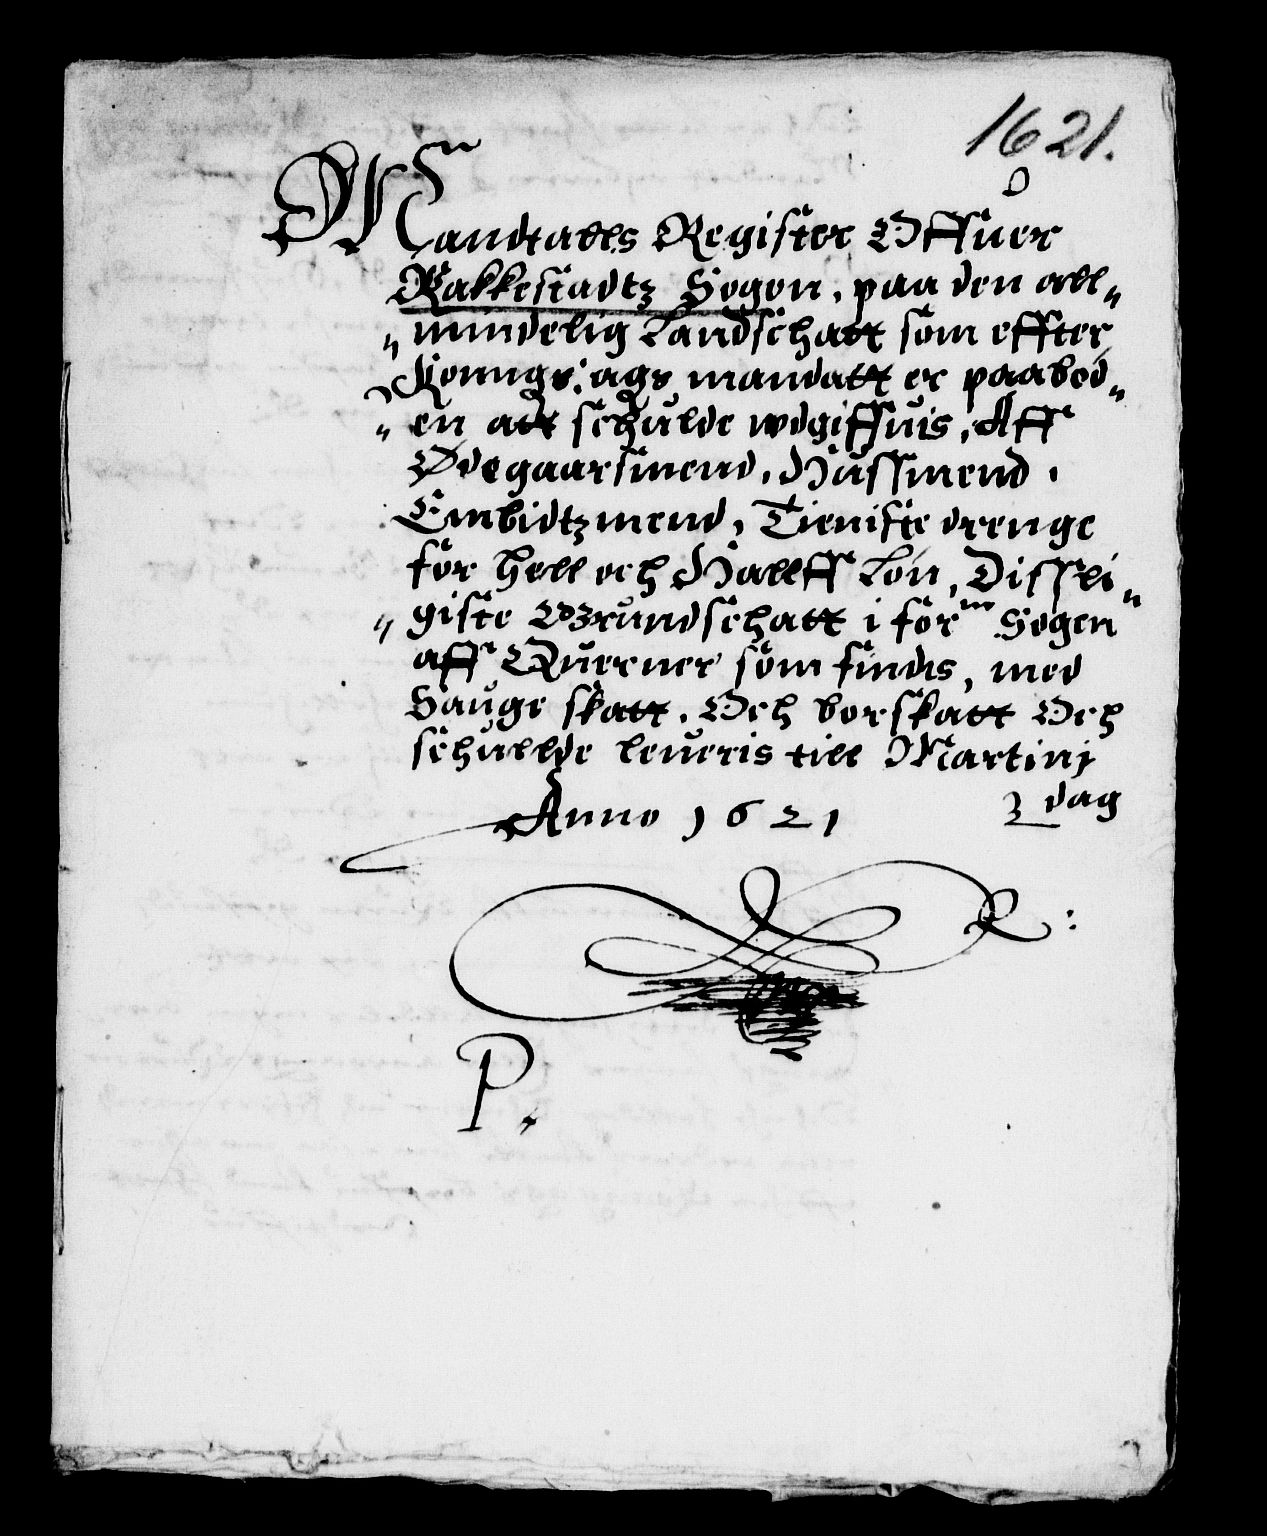 1621.
Mandtalls Register Offuer
Rakkestadtz Sogen, paa den all„
„mindelig Landschatt som effter
Konngs: ags mandatt er paabod„
„en att schulde wdgiffuis, Aff
Ødegaarsmend, Hussmend,
Embidtzmend, Tieniste drenge
for hell och Hallff Løn, Dissli„
„giste Grundschatt i for:ne Sogen
aff Querner som findis, med
Sauge skatt, Och borskatt Och
schullde leueris till Martinj
dag
Anno 1621
R:
P.